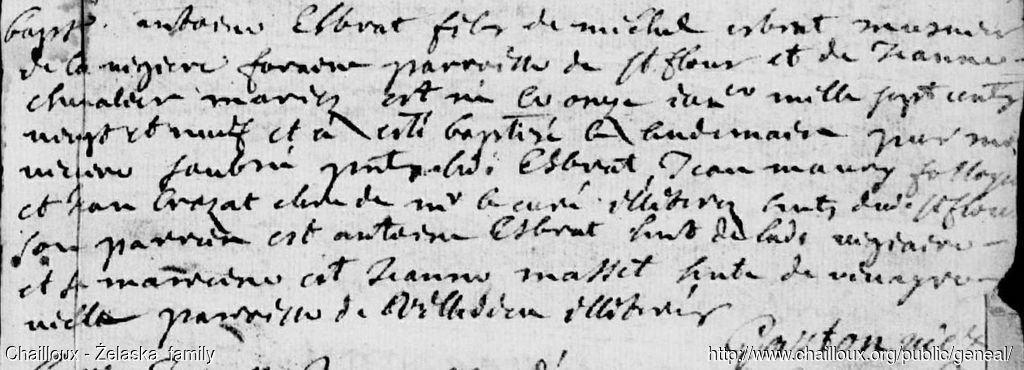 bapt. antoine Esbrat fils de michel esbrat musnier
de la vegiere foraine parroisse de st flour et de Jeanne
chevaleir mariez est né le onze janer mille sept cents
vingt et neuf et a esté baptizé le lendemain par
vicaire pnt ledi Esbrat, Jean maury
et Jean Crozat clerc de mr le curé illiterez hants dud st flour
son parrein est antoine Esbrat hnt dud
et sa marreine est Jeanne masset hnte de
ville parroisse de Villedieu illiterés
Gaston vice
Chailloux - Żelaska family
http://www.chailloux.org/public/geneal/